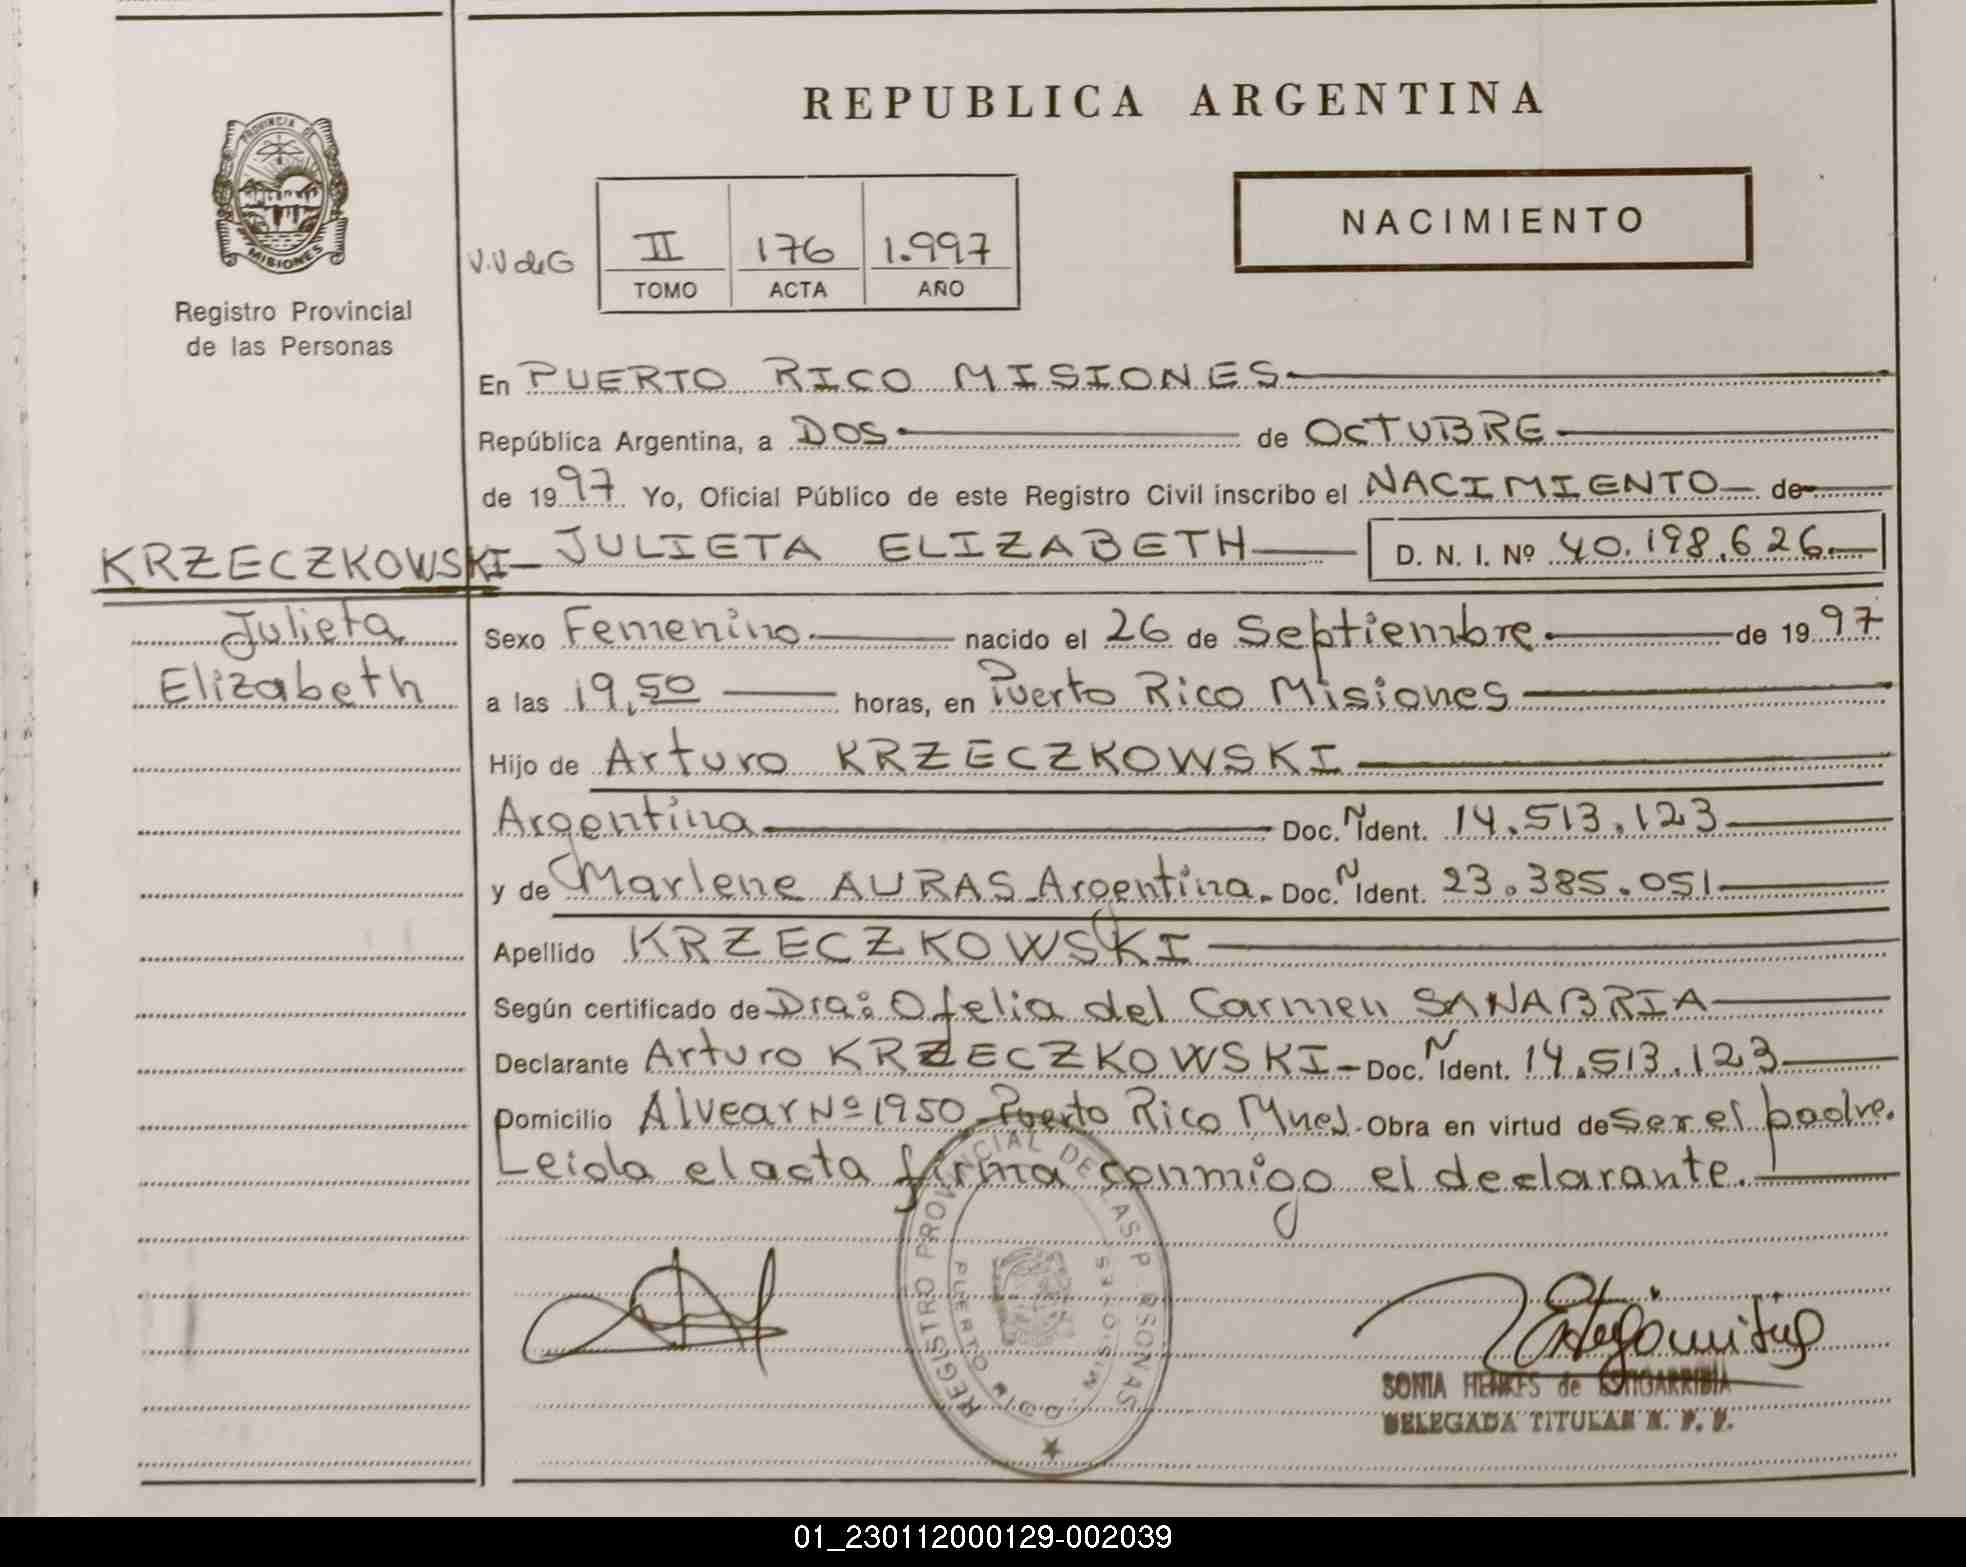 REPUBLICA ARGENTINA
PROVINCIA DE
MISIONES
Registro Provincial
de las Personas
NACIMIENTO
V.V de G
II 176 1.997
TOMO ACTA AÑO
En PUERTO RICO MISIONES
República Argentina, a DOS de OCTUBRE
de 1997 Yo, Oficial Público de este Registro Civil inscribo el NACIMIENTO de
KRZECZKOWSKI JULIETA ELIZABETH D. N. I. Nº 40.198.626.
Julieta
Elizabeth
Sexo Femenino. nacido el 26 de Septiembre. de 1997
a las 19,50 horas, en Puerto Rico Misiones
Hijo de Arturo KRZECZKOWSKI
Argentina Doc. Ñ Ident. 14.513.123
y de Marlene AURAS Argentina. Doc. Ñ Ident. 23.385.051
Apellido KRZECZKOWSKI
Según certificado de Dra: Ofelia del Carmen SANABRIA
Declarante Arturo KRZECZKOWSKI - Doc. Ñ Ident. 14.513.123
Domicilio Alvear Nº 1950 Puerto Rico Mnes. Obra en virtud de ser el padre.
Leida el acta firma conmigo el declarante.
REGISTRO PROVINCIAL DE LAS PERSONAS
PUERTO RICO - MISIONES
SONIA HENKES de ESTIGARRIBIA
DELEGADA TITULAR R. P. P.
01_230112000129-002039